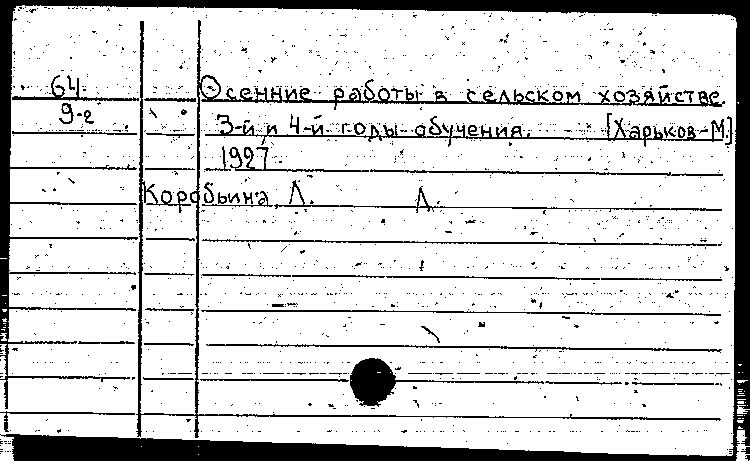 64 Осенние работы в сельском хозяйстве.
9-2 3-й и 4-й годы обучения. [Харьков-М.]
1927.
Коробьина, Л. Л.